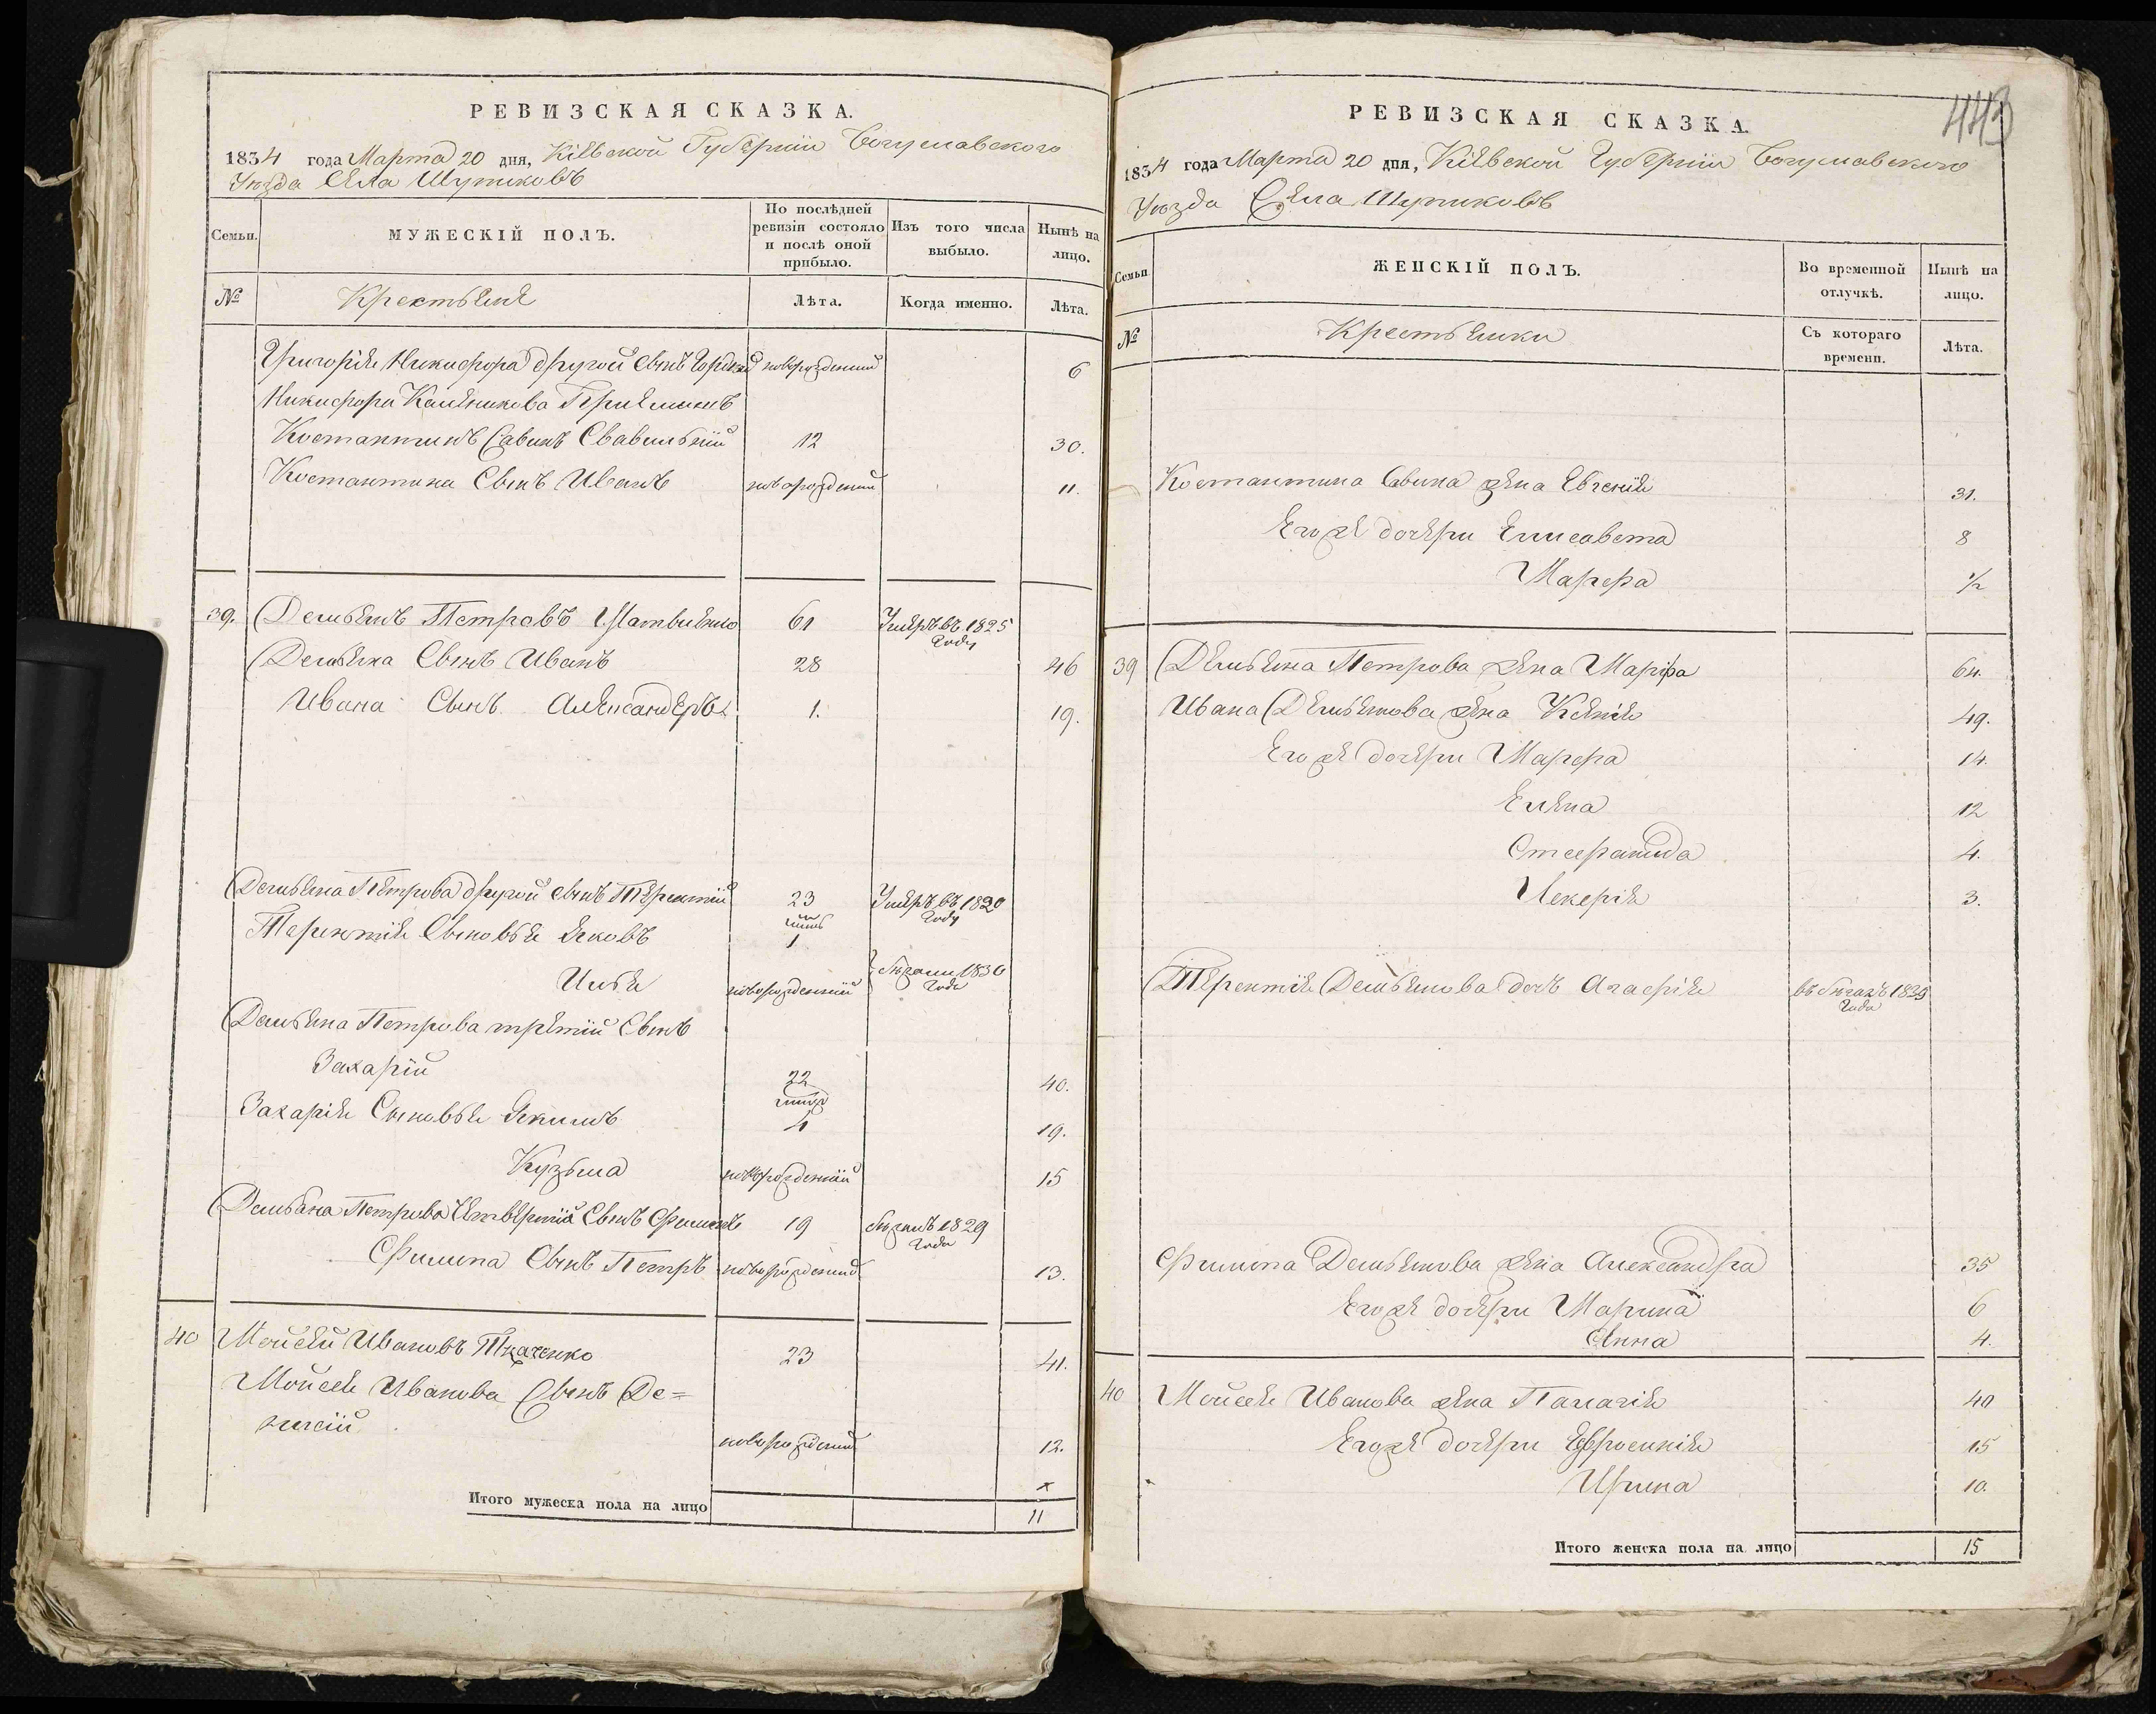 РЕВИЗСКАЯ СКАЗКА.
1834 года Марта 20 дня, Кіевской Губерніи Богуславскаго
Уѣзда Села Шупиковъ
Семьи.
МУЖЕСКІЙ ПОЛЪ.
По послѣдней ревизіи состояло и послѣ оной прибыло.
Изъ того числа выбыло.
Нынѣ на лицо.
№
Крестьяне
Лѣта.
Когда именно.
Лѣта.
Григорія Никифора другой сынъ новорожденній 6
Никифора
Костантинъ Савинъ 12 30.
Костантина Сынъ Иванъ новорожденій 11.
39. Демьянъ Петровъ Матвиенко 61 Умеръ въ 1825 Году
Демьяна Сынъ Иванъ 28 46
Ивана Сынъ Александеръ 1. 19.
Демьяна Петрова другой сынъ Терентій 23 Умеръ въ 1820 Году
Терентія Сыновья Яковъ 1
Илья новорожденній Бѣгаши 1830 Года
Демьяна Петрова третій Сынъ
Захарій 22 40.
Захарія Сыновья Якимъ 4 19.
Кузьма новорожденній 15
Демьяна Петрова Четвертій Сынъ Филипъ 19 1829 Года
Филипа Сынъ Петръ новорожденій 13.
40 Мойсей Ивановъ Ткаченко 23 41.
Мойсея Иванова Сынъ Де=
новорожденій 12.
Итого мужеска пола на лицо 11
РЕВИЗСКАЯ СКАЗКА.
443
1834 года Марта 20 дня, Кіевской Губерніи Богуславского
Уѣзда Села Шупиковъ
Семьи
ЖЕНСКІЙ ПОЛЪ.
Во временной отлучкѣ.
Нынѣ на лицо.
№
Крестьянки
Съ котораго времени.
Лѣта.
Костантина Савина жена Евгенія 31.
Его же дочери Елисавета 8
Марфа 1/2
39 Демьяна Петрова жена Марфа 64.
Ивана Демьянова жена Ксенія 49.
Его же дочери Марфа 14.
Елена 12
Стефанида 4.
Иекерія 3.
Терентія Демьянова дочь Агафія въ бѣгахъ 1829 Года
Филипа Демьянова жена Александра 35
Его же дочери Марина 6
Анна 4.
40 Мойсея Иванова жена Палагія 40
Его же дочери Евфросинія 15
Ирина 10.
Итого женска пола на лицо 15